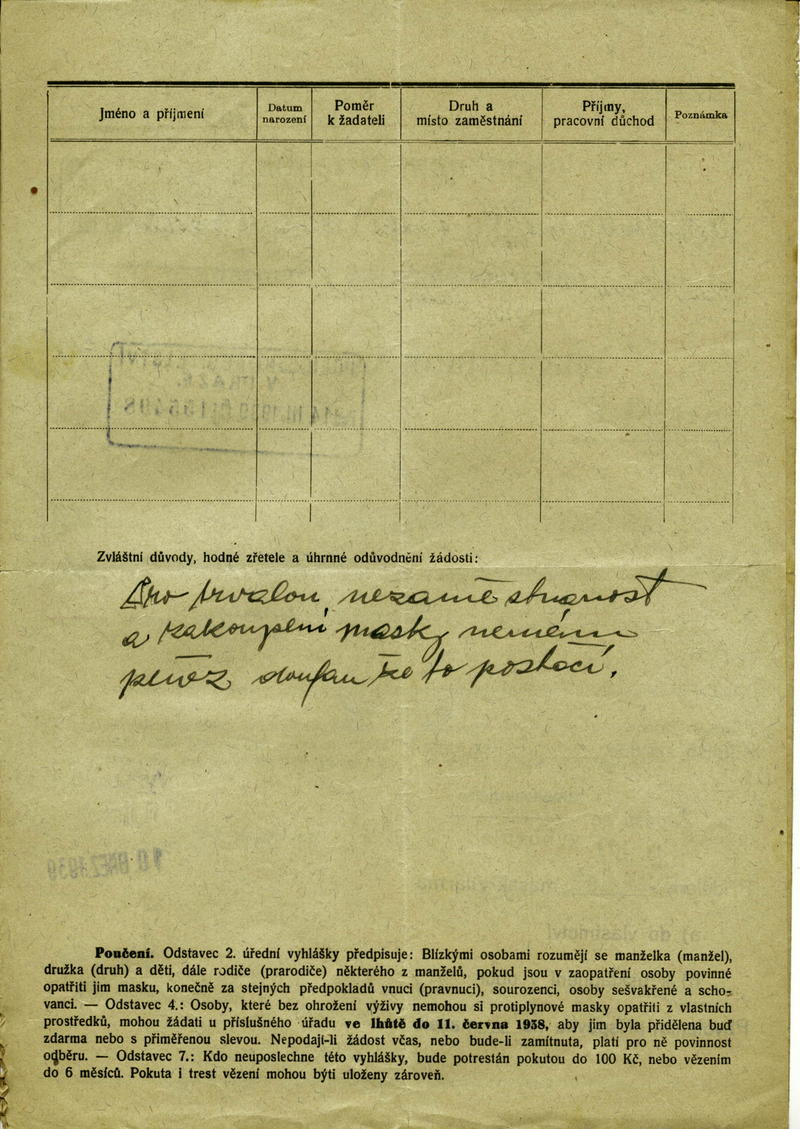 Jméno a příjmení
Datum narození
Poměr k žadateli
Druh a místo zaměstnání
Příjmy, pracovní důchod
Poznámka
Zvláštní důvody, hodné zřetele a úhrnné odůvodnění žádosti:
a zakoupení masky nemám
peněz, doufám že to postačí.
Poučení. Odstavec 2. úřední vyhlášky předpisuje: Blízkými osobami rozumějí se manželka (manžel),
družka (druh) a děti, dále rodiče (prarodiče) některého z manželů, pokud jsou v zaopatření osoby povinné
opatřiti jim masku, konečně za stejných předpokladů vnuci (pravnuci), sourozenci, osoby sešvakřené a scho-
vanci. — Odstavec 4.: Osoby, které bez ohrožení výživy nemohou si protiplynové masky opatřiti z vlastních
prostředků, mohou žádati u příslušného úřadu ve lhůtě do 11. června 1938, aby jim byla přidělena buď
zdarma nebo s přiměřenou slevou. Nepodají-li žádost včas, nebo bude-li zamítnuta, platí pro ně povinnost
odběru. — Odstavec 7.: Kdo neuposlechne této vyhlášky, bude potrestán pokutou do 100 Kč, nebo vězením
do 6 měsíců. Pokuta i trest vězení mohou býti uloženy zároveň.